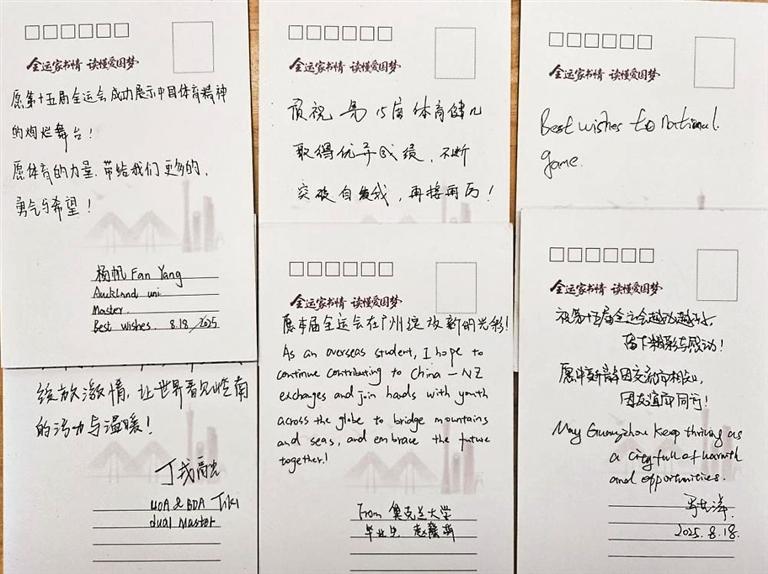 全运家书情 读懂爱国梦
愿第十五届全运会成功展示中国体育精神
的绚烂舞台！
愿体育的力量，带给我们更多的，
勇气与希望！
杨帆 Fan Yang
Auckland uni
Master.
Best wishes. 8.18/2025
全运家书情 读懂爱国梦
预祝 15届体育健儿
取得优异成绩，不断
突破自我，再接再厉！
全运家书情 读懂爱国梦
Best wishes to National
game.
绽放激情，让世界看见岭南
的活力与温暖！
UOA & BDA Tiki
dual Master
全运家书情 读懂爱国梦
愿本届全运会在广州绽放新的光彩！
As an overseas student, I hope to
continue contributing to China - NZ
exchanges and join hands with youth
across the globe to bridge mountains
and seas, and embrace the future
together!
From 奥克兰大学
毕业生 赵
全运家书情 读懂爱国梦
祝第十五届全运会越办越好，
留下精彩与感动！
愿中新两国因交流而相知，
因友谊而同行！
May Guangzhou keep thriving as
a city full of warmth
and opportunities.
2025.8.18.